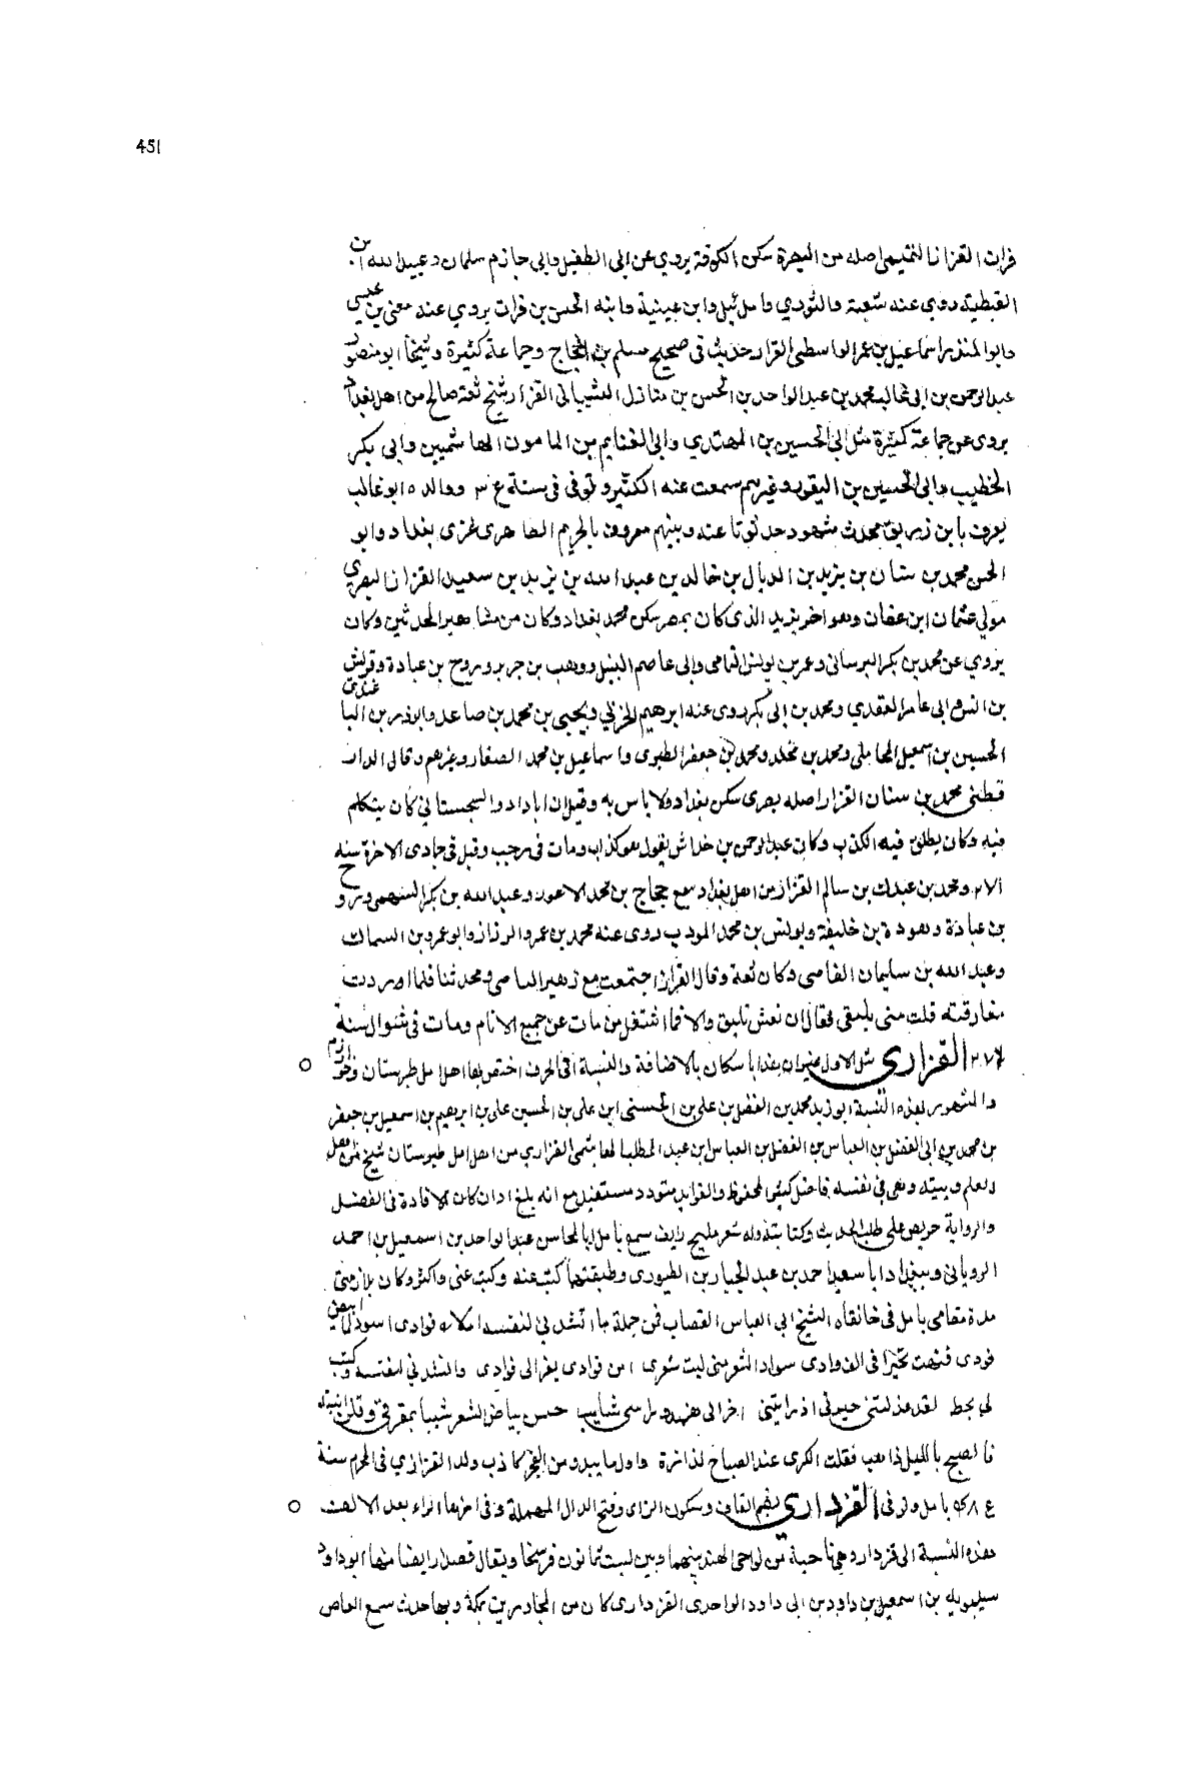 451
فرات القزاز التميمي اصله من البصرة سكن الكوفة يروي عن ابي الطفيل وابي حازم سلمان وعبيد الله ابن
القبطية روى عنه شعبة والثوري وابن عيينة وابنه الحسن بن فرات يروي عنه معن بن عيسى
وابو المنذر اسماعيل بن عمر الواسطي القزاز حديثه في صحيح مسلم بن الحجاج وجماعة كثيرة وشيخنا ابو منصور
عبد الرحمن بن ابي غالب محمد بن عبد الواحد بن الحسن بن منازل الشيباني القزاز شيخ ثقة صالح من اهل بغداد
يروى عن جماعة كثيرة مثل ابي الحسين بن المهتدي وابي الغنايم بن المامون الهاشميين وابي بكر
الخطيب وابي الحسين بن النقور وغيرهم سمعت عنه الكثير وتوفي في سنة ووالده ابو غالب
يعرف بابن زريق محدث مشهور حدثونا عنه وبيتهم معروف بالحريم الطاهرى غربى بغداد وابو
الحسن محمد بن سنان بن يزيد بن الذيال بن خالد بن عبد الله بن يزيد بن سعيد القزاز البصري
مولى عثمان ابن عفان وهو اخو يزيد الذى كان بمصر سكن محمد بغداد وكان من مشاهير المحدثين وكان
يروي عن محمد بن بكر البرسانى وعمر بن يونس اليمامى وابى عاصم النبيل ووهب بن جرير وروح بن عبادة وقريش
بن انس وابى عامر العقدي ومحمد بن ابى بكر روى عنه ابرهيم الحربي ويحيى بن محمد بن صاعد وابو ذر بن الباغندى
الحسين بن اسمعيل المحاملى ومحمد بن مخلد ومحمد بن جعفر الطبرى واسماعيل بن محمد الصفار وغيرهم وقال الدار
قطنى محمد بن سنان القزاز اصله بصرى سكن بغداد ولا باس به وقيل ان ابا داود السجستاني كان يتكلم
فيه وكان يطلق فيه الكذب وكان عبد الرحمن بن خراش يقول هو كذاب ومات فى رجب وقيل فى جمادى الاخرة سنة
٢٧١ ومحمد بن عبدك بن سالم القزاز من اهل بغداد سمع حجاج بن محمد الاعور وعبد الله بن بكر السهمى وروح
بن عبادة وهوذة بن خليفة ويونس بن محمد المودب روى عنه محمد بن عمرو الرزاز وابو عمرو بن السماك
وعبد الله بن سليمان الفامى وكان ثقة وقال القزاز اجتمعت مع زهير ومحدثنا فلما اردت
مفارقته قلت متى نلتقى فقال ان نعش نلتق والا فما اشتغل من مات عن جميع الانام ومات فى شوال سنة
٢٧٦ القزارى مثل الاول غير ان بعدها باسكان بالاضافة والنسبة الى الحرف اختص بها اهل امل طبرستان وخوارزم
والمشهور بهذه النسبة ابو زيد محمد بن الفضل بن على بن الحسنى ابن على بن الحسين على بن ابرهيم بن اسمعيل بن جعفر
بن محمد بن ابى الفضل بن العباس بن الفضل بن العباس ابن عبد المطلب الهاشمى القزاري من اهل امل طبرستان شيخ من اهل
العلم وبيته وهى فى نفسه فاضل كثير المحفوظ والفوايد متودد مستقبل مع انه بلغ اوان كان الافادة فى الفضل
والرواية حريص على طلب الحديث وكتابته وله شعر مليح رايق سمع بامل ابا المحاسن عبد الواحد بن اسمعيل بن احمد
الرويانى وببغداد ابا سعد احمد بن عبد الجبار بن الطيورى وطبقتهما كتبت عنه وكتب عنى واكثر وكان يلازمنى
مدة مقامى بامل فى خانقاه الشيخ ابى العباس القصاب فمن جملة ما انشدني لنفسه املاء فوادى اسود لما ابيض
فودى فتهت تحيرا فى الفوادى سواد الشعر منى ليت شعرى امن فوادى يفر الى فوادى وانشدني لنفسه وكتب
لى بخط لقد عذلتنى حيرنى اذ راتنى حسن بياض الشعر شيبا بمفرقى وقلن
فالصبح بالليل ذاهب فقلت الكرى عند الصباح لذاذة واول ما يبدو من الفجر كاذب ولد القزازي فى المحرم سنة
٤٨٥ بامل وتوفى القزدارى بضم القاف وسكون الزاى وفتح الدال المهملة وفى اخرها الراء بعد الالف
هذه النسبة الى قزدار وهى ناحية من نواحى الهند بينهما وبين بست ثمانون فرسخا ويقال قصدار ايضا منها ابو داود
سيبويه بن اسمعيل بن داود بن ابى داود الواحدى القزدارى كان من المجاورين بمكة وبها حدث سمع العاص